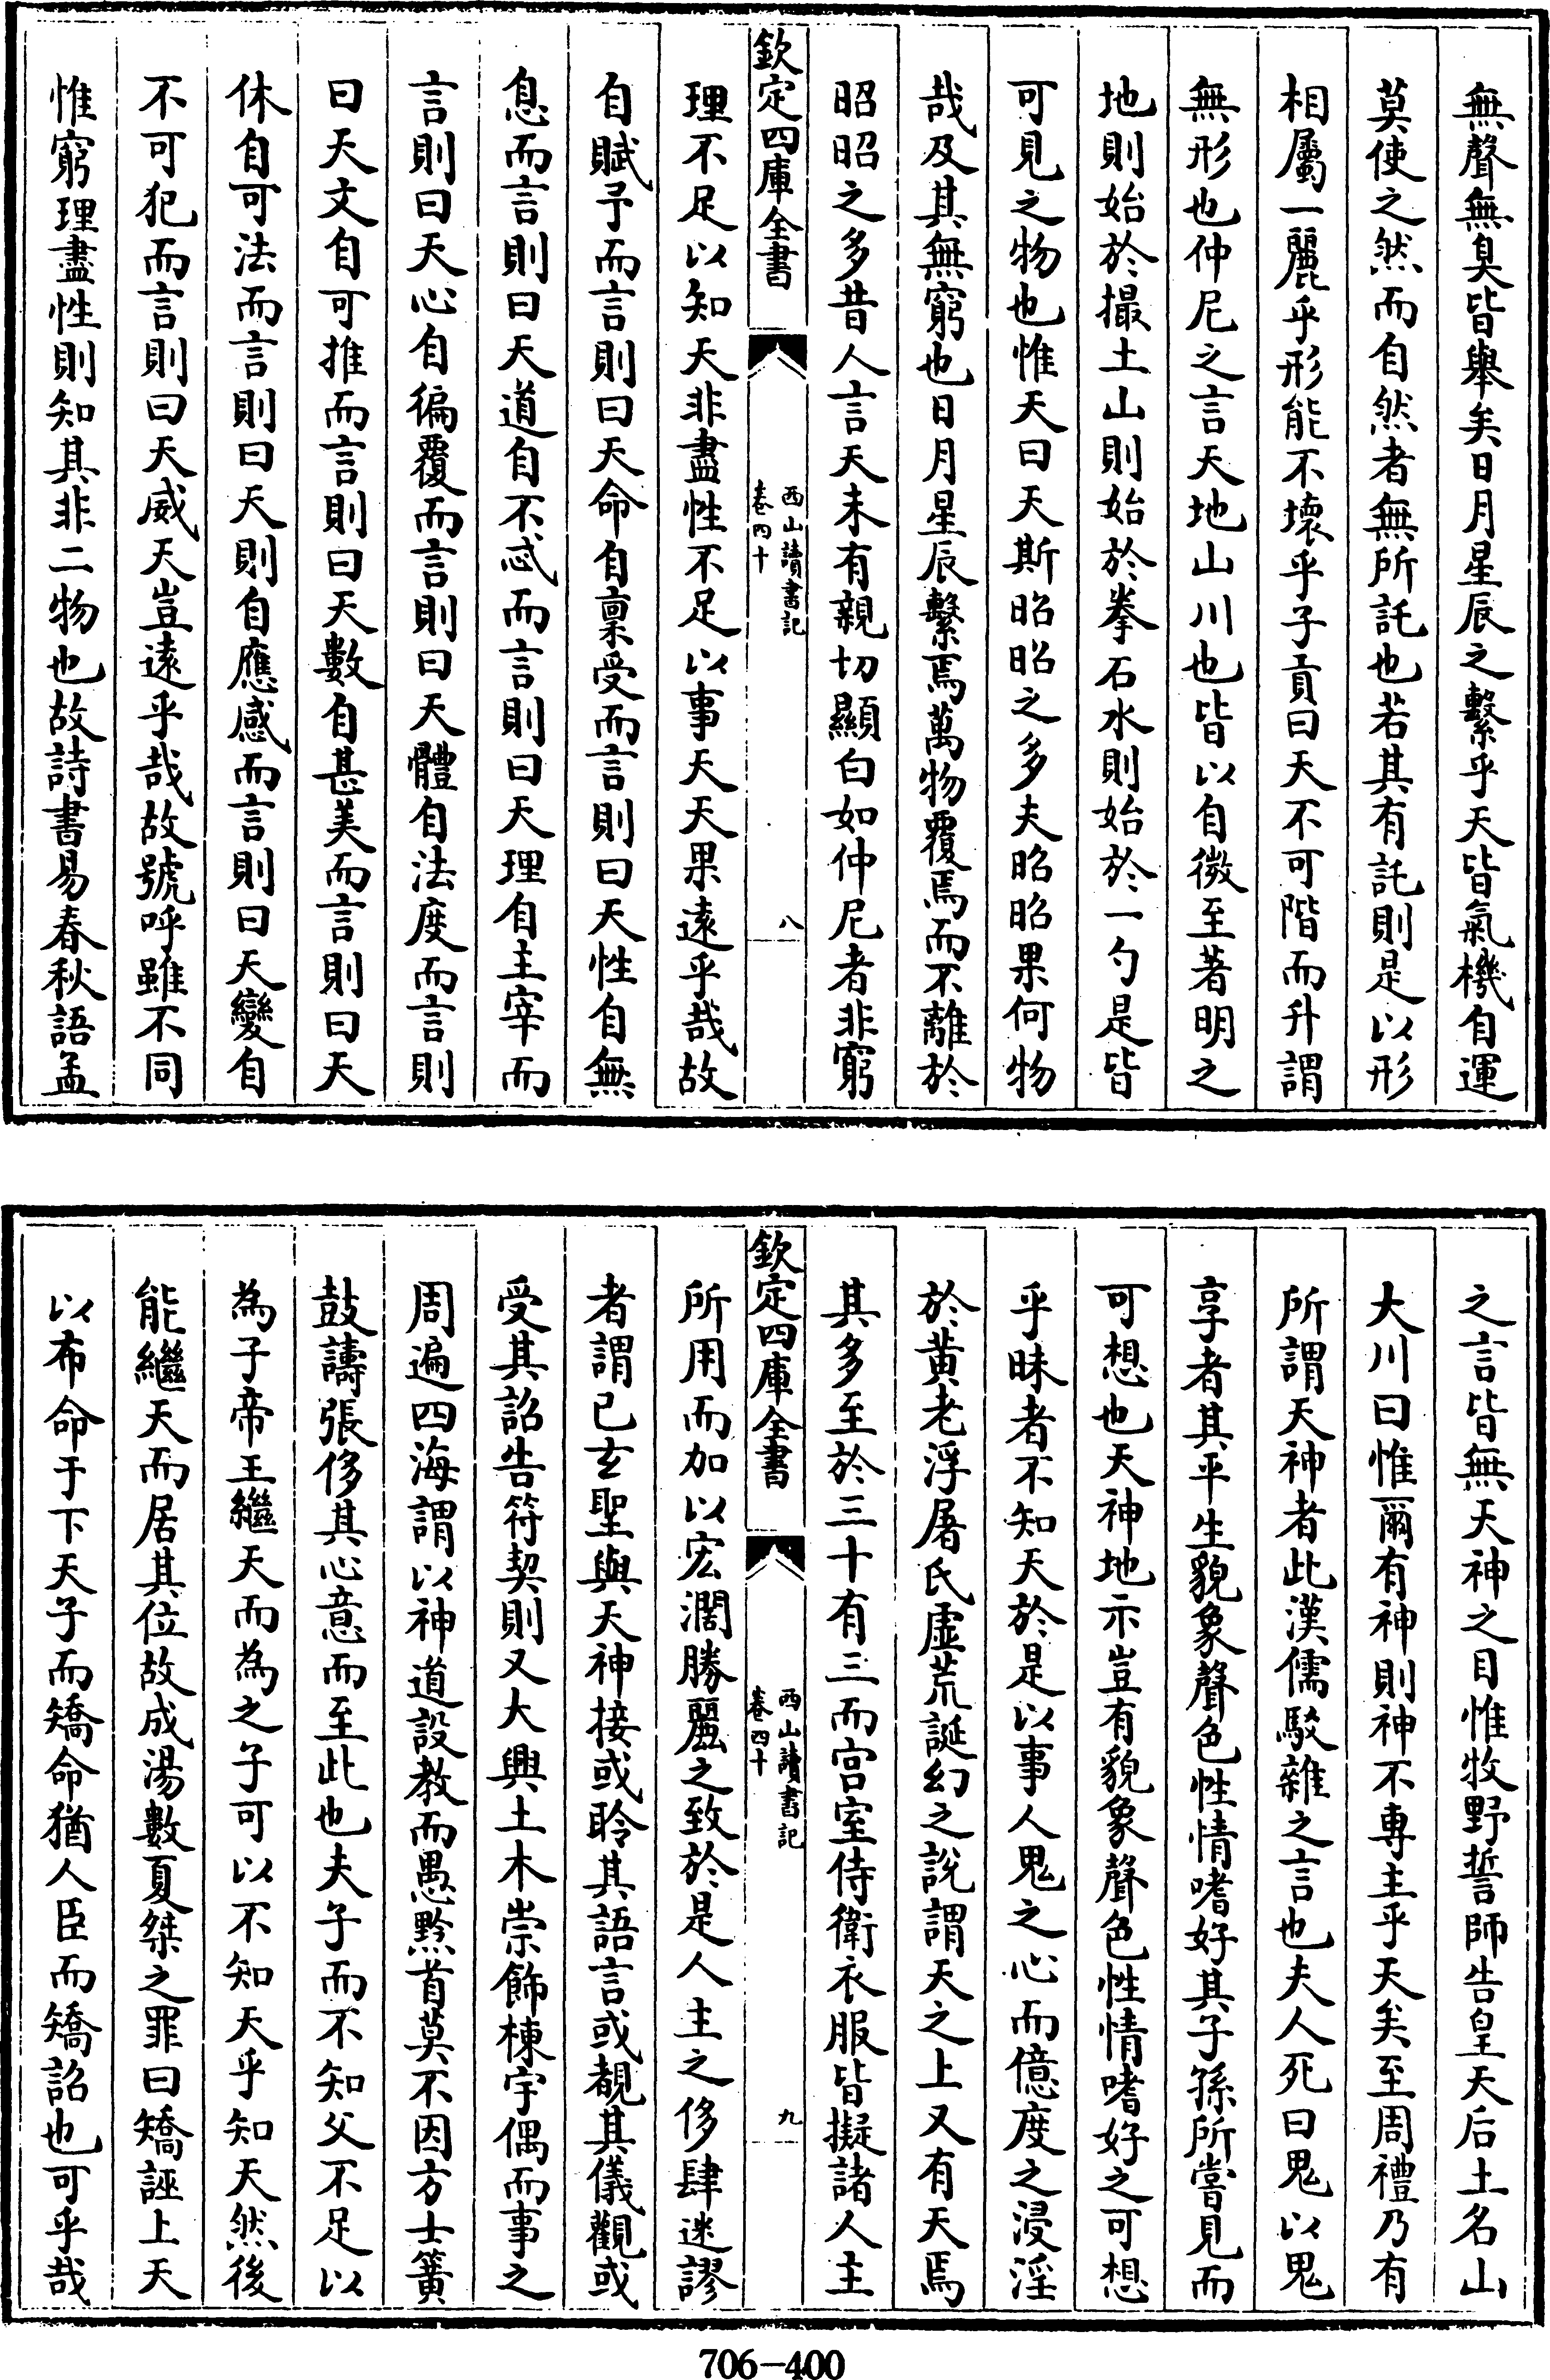 無聲無臭皆舉矣日月星辰之繫乎天皆氣機自運
莫使之然而自然者無所託也若其有託則是以形
相屬一麗乎形能不壞乎子貢曰天不可階而升謂
無形也仲尼之言天地山川也皆以自微至著明之
地則始於撮土山則始於拳石水則始於一勺是皆
可見之物也惟天曰天斯昭昭之多夫昭昭果何物
哉及其無窮也日月星辰繫焉萬物覆焉而不離於
昭昭之多昔人言天未有親切顯白如仲尼者非窮
欽定四庫全書
西山讀書記
卷四十
八
理不足以知天非盡性不足以事天天果遠乎哉故
自賦予而言則曰天命自稟受而言則曰天性自無
息而言則曰天道自不忒而言則曰天理自主宰而
言則曰天心自徧覆而言則曰天體自法度而言則
曰天文自可推而言則曰天數自甚美而言則曰天
休自可法而言則曰天則自應感而言則曰天變自
不可犯而言則曰天威天豈遠乎哉故號呼雖不同
惟窮理盡性則知其非二物也故詩書易春秋語孟
之言皆無天神之目惟牧野誓師告皇天后土名山
大川曰惟爾有神則神不專主乎天矣至周禮乃有
所謂天神者此漢儒駁雜之言也夫人死曰鬼以鬼
享者其平生貌象聲色性情嗜好其子孫所嘗見而
可想也天神地示豈有貌象聲色性情嗜好之可想
乎昧者不知天於是以事人鬼之心而億度之浸淫
於黄老浮屠氏虛荒誕幻之說謂天之上又有天焉
其多至於三十有三而宫室侍衛衣服皆擬諸人主
欽定四庫全書
西山讀書記
卷四十
九
所用而加以宏濶勝麗之致於是人主之侈肆迷謬
者謂已玄聖與天神接或聆其語言或覩其儀觀或
受其詔告符契則又大興土木崇飾棟宇偶而事之
周遍四海謂以神道設教而愚黔首莫不因方士簧
鼓譸張侈其心意而至此也夫子而不知父不足以
為子帝王繼天而為之子可以不知天乎知天然後
能繼天而居其位故成湯數夏桀之罪曰矯誣上天
以布命于下天子而矯命猶人臣而矯詔也可乎哉
706-400